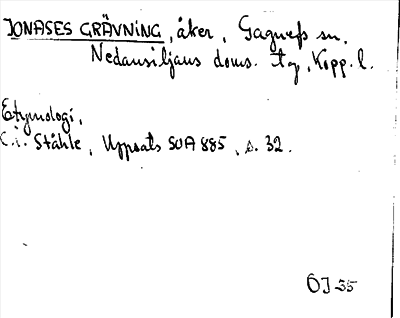 JONASES GRÄVNING, åker, Gagnefs sn,
Nedansiljans doms. tg, Kopp. l.
Etymologi,
C.i. Ståhle, Uppsats SOA 885, s. 32.
ÖJ 35